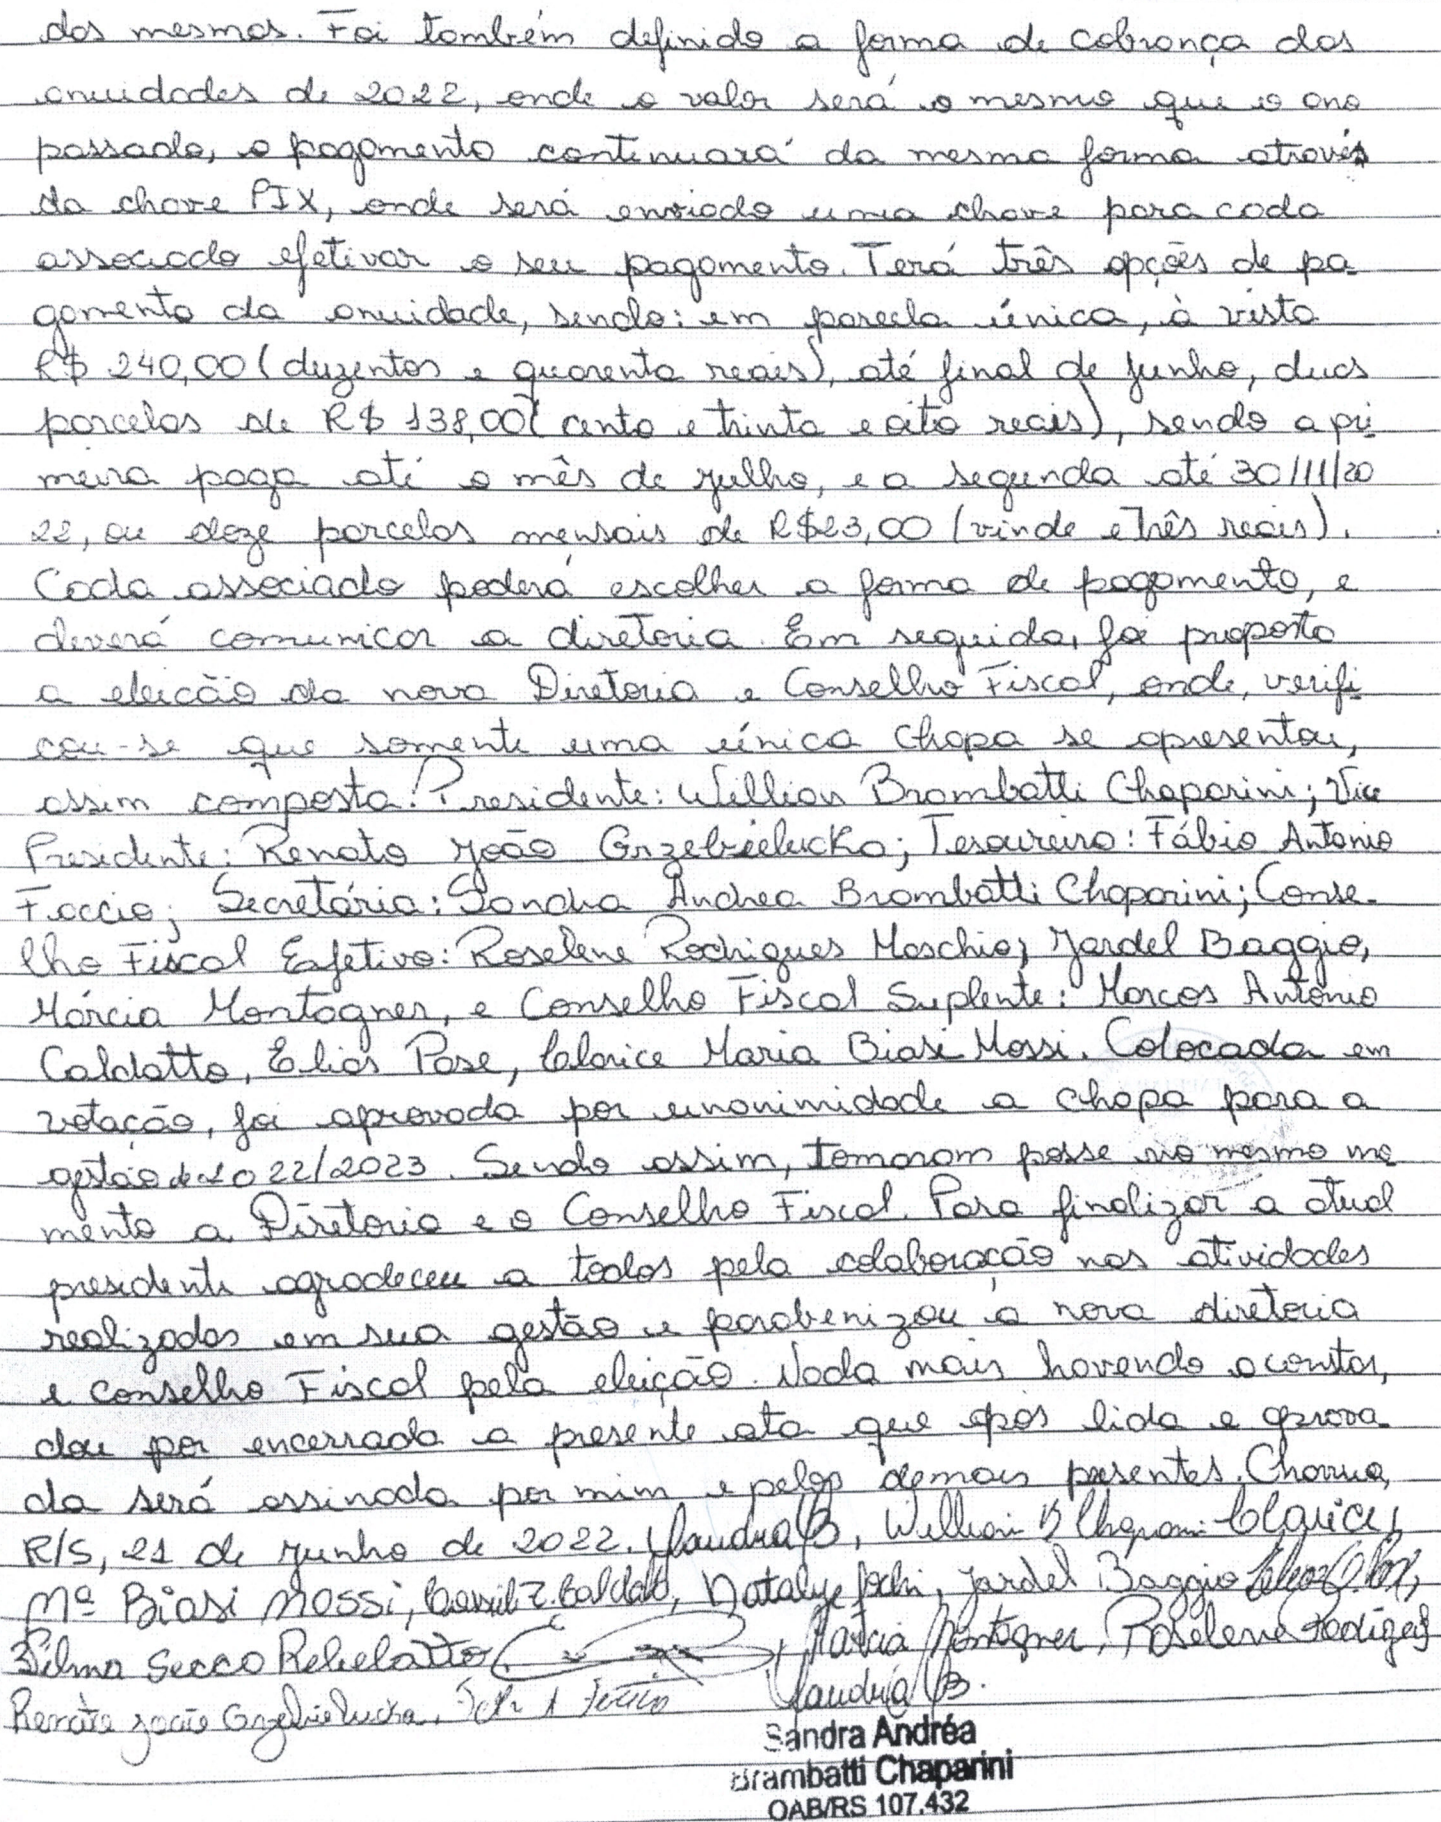 dos mesmos. Foi também definido a forma de cobrança das
anuidades de 2022, onde o valor será o mesmo que o ano
passado, o pagamento continuará da mesma forma através
da chave PIX, onde será enviado uma chave para cada
associado efetivar o seu pagamento. Terá três opções de pa-
gamento da anuidade, sendo: em parcela única, à vista
R$ 240,00 (duzentos e quarenta reais), até final de junho, duas
parcelas de R$ 138,00 (cento e trinta e oito reais), sendo a pri-
meira paga até o mês de julho, e a segunda até 30/11/20
22, ou doze parcelas mensais de R$23,00 (vinde e três reais).
Cada associado poderá escolher a forma de pagamento, e
deverá comunicar a diretoria. Em seguida, foi proposto
a eleição da nova Diretoria e Conselho Fiscal, onde, verifi-
cou-se que somente uma única Chapa se apresentou,
assim composta: Presidente: Willian Brambatti Chaparini; Vice
Presidente: Renato João Grzebielucka; Tesoureiro: Fábio Antonio
Faccio; Secretária: Sandra Andrea Brambatti Chaparini; Conse-
lho Fiscal Eafetivo: Roselene Rodrigues Moschio; Jardel Baggio,
Márcia Montagner, e Conselho Fiscal Suplente: Marcos Antônio
Caldatto, Elias Pase, Clarice Maria Biasi Mossi. Colocada em
votação, foi aprovada por unanimidade a Chapa para a
gestão de 2022/2023. Sendo assim, tomaram posse no mesmo mo-
mento a Diretoria e o Conselho Fiscal. Para finalizar a atual
presidente agradeceu a todos pela colaboração nas atividades
realizadas em sua gestão e parabenizou a nova diretoria
e conselho Fiscal pela eleição. Nada mais havendo a constar,
dou por encerrada a presente ata que após lida e aprova-
da será assinada por mim e pelos demais presentes. Charrua,
R/S, 21 de junho de 2022. Willian B Chaparini Clarice
Mª Biasi Mossi, Caldatto, Natalye, Jardel Baggio
Silma Secco Rebelatto Marcia Montagner, Roselene Rodigues
Renato João Grzebielucka,
Sandra Andréa
Brambatti Chaparini
OAB/RS 107.432